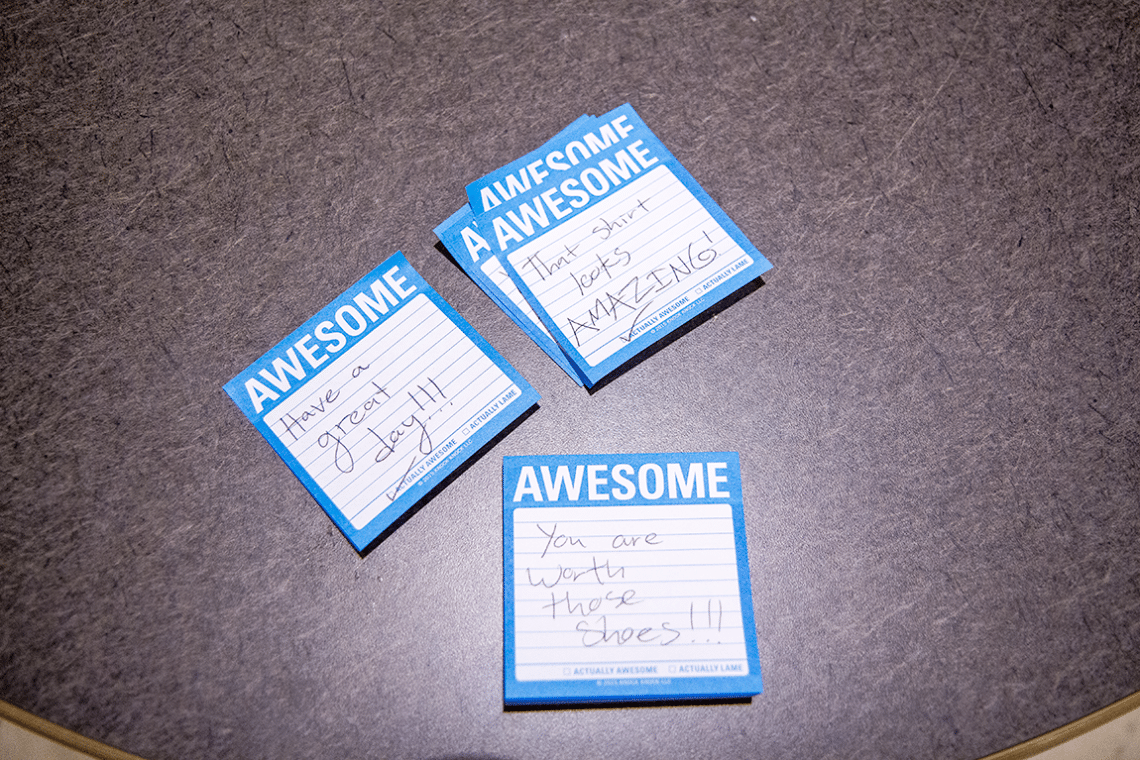 AWESOME
AWESOME
That shirt
looks
AMAZING!
ACTUALLY AWESOME ACTUALLY LAME
© 2015 KNOCK KNOCK LLC
AWESOME
Have a
great
day!!!
ACTUALLY AWESOME ACTUALLY LAME
© 2015 KNOCK KNOCK LLC
AWESOME
You are
worth
those
shoes!!!
ACTUALLY AWESOME ACTUALLY LAME
© 2015 KNOCK KNOCK LLC